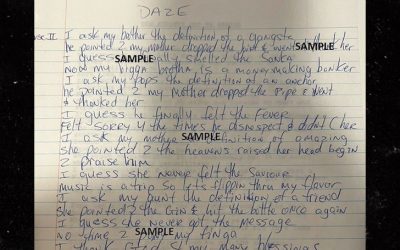 DAZE
I ask my brother the definition of a gangsta
he pointed 2 my mother dropped the
I guess finally smelled the
now my brother is a money making banker
I ask my the definition of an anchor
he pointed 2 my mother dropped the pipe & went
& thanked her
I guess he finally felt the fever
Felt sorry 4 the times he disrespect & didnt her
I ask my mother definition of amazing
she pointed 2 the heavens raised her head begin
2 praise him
I guess she never felt the Saviour
music is a trip so lets flippin thru my flavor
I ask my aunt the definition of a friend
she pointed 2 the Gin & hit the bottle once again
I guess she never got the message
no time 2 my finga
I thank God 4 my many blessing
SAMPLE
SAMPLE
SAMPLE
SAMPLE
SAMPLE